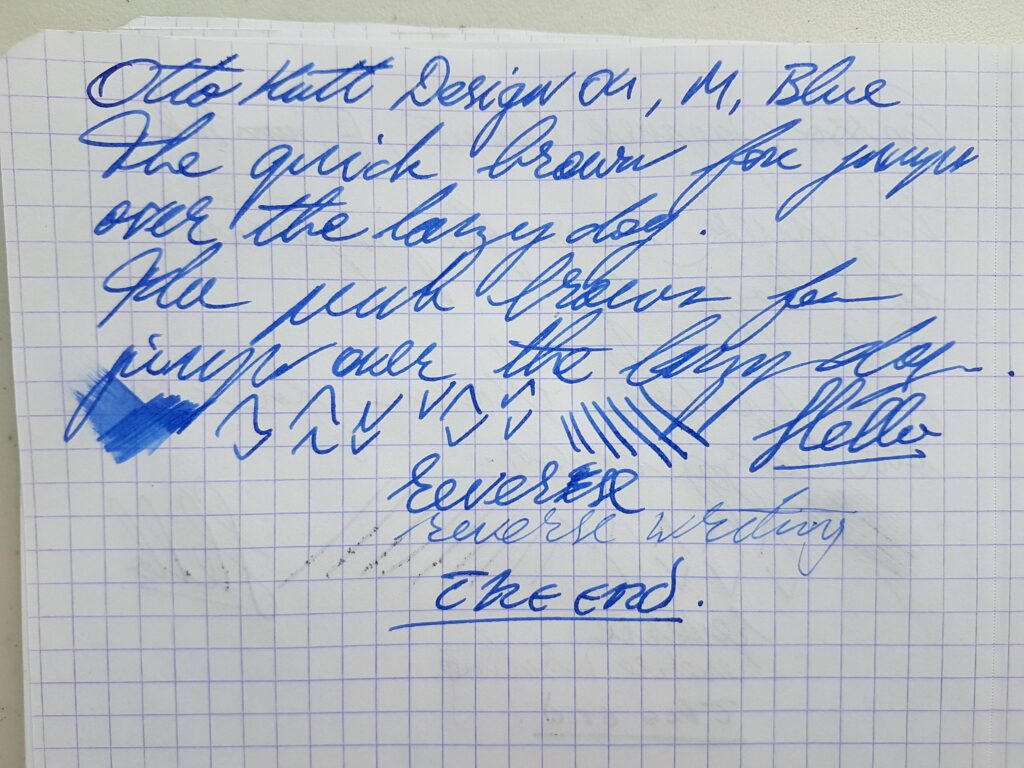 Otto Hutt Design 04, M, Blue
The quick brown fox jumps
over the lazy dog.
The quick brown fox
jumps over the lazy dog.
Hello
reverse
reverse writing
The end.